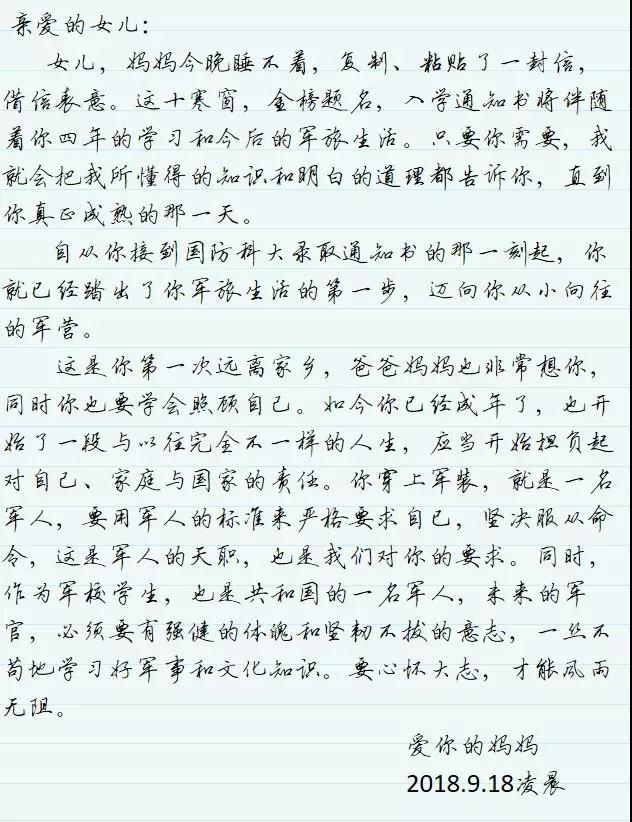 亲爱的女儿：
女儿，妈妈今晚睡不着，复制、粘贴了一封信，
借信表意。这十寒窗，金榜题名，入学通知书将伴随
着你四年的学习和今后的军旅生活。只要你需要，我
就会把我所懂得的知识和明白的道理都告诉你，直到
你真正成熟的那一天。
自从你接到国防科大录取通知书的那一刻起，你
就已经踏出了你军旅生活的第一步，迈向你从小向往
的军营。
这是你第一次远离家乡，爸爸妈妈也非常想你，
同时你也要学会照顾自己。如今你已经成年了，也开
始了一段与以往完全不一样的人生，应当开始担负起
对自己、家庭与国家的责任。你穿上军装，就是一名
军人，要用军人的标准来严格要求自己，坚决服从命
令，这是军人的天职，也是我们对你的要求。同时，
作为军校学生，也是共和国的一名军人，未来的军
官，必须要有强健的体魄和坚韧不拔的意志，一丝不
苟地学习好军事和文化知识。要心怀大志，才能风雨
无阻。
爱你的妈妈
2018.9.18凌晨